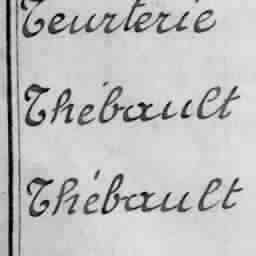 Teurterie
Thébault
Thébault